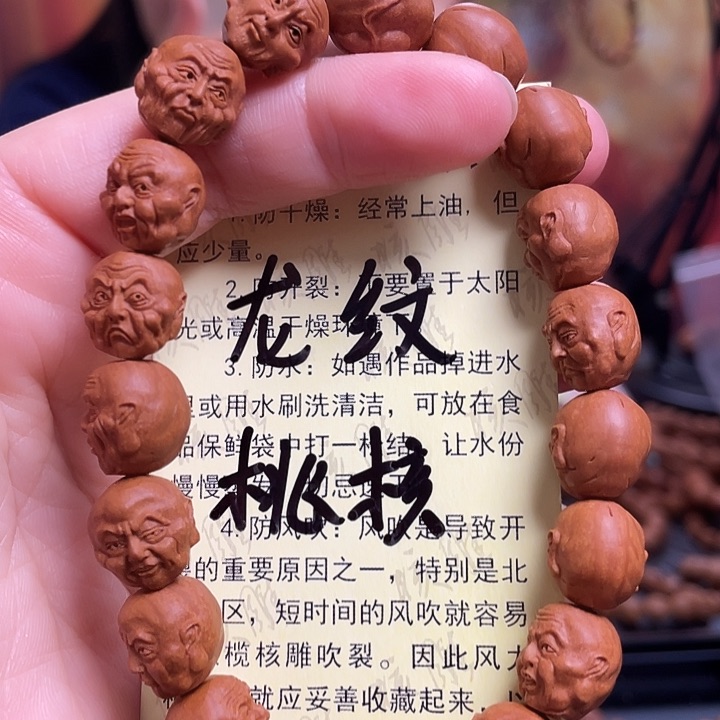 1. 防干燥：经常上油，但
应少量。
2. 防开裂：要置于太阳
光或高温干燥环境下
龙纹
3. 防水：如遇作品掉进水
或用水刷洗清洁，可放在食
品保鲜袋中打一结，让水份
慢慢
桃核
4. 防风吹：风吹是导致开
的重要原因之一，特别是北
区，短时间的风吹就容易
榄核雕吹裂。因此风大
就应妥善收藏起来，以